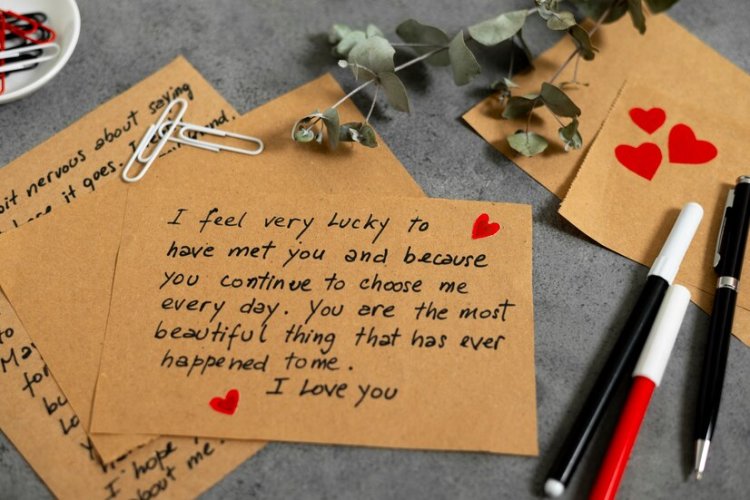 bit nervous about saying
it goes. I
I feel very Lucky to
have met you and because
you continue to choose me
every day. You are the most
beautiful thing that has ever
happened to me.
I Love you
to
for
bu
I hope
about me.